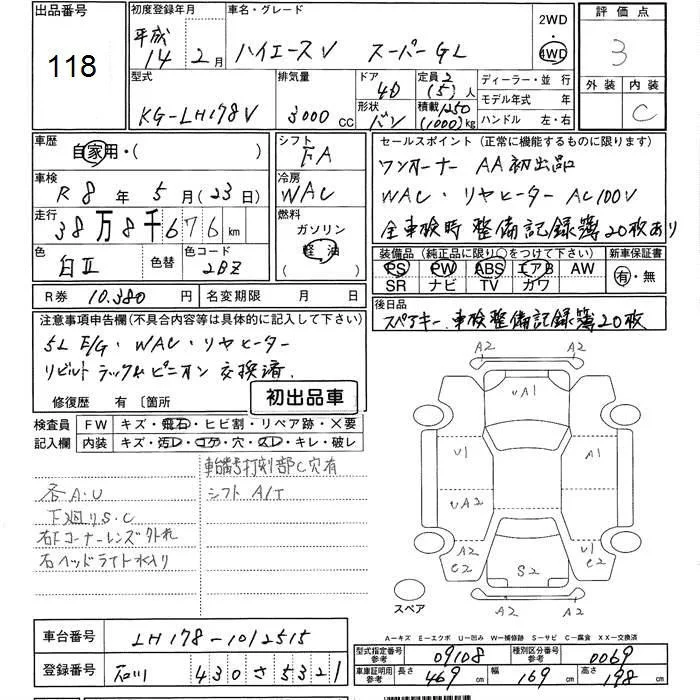 出品番号 118
初度登録年月 平成14年2月
車名・グレード ハイエースV スーパーGL
2WD・4WD
評価点 3
外装 内装 C
型式 KG-LH178V
排気量 3000cc
ドア 4D
形状 バン
定員 2(5)人
積載 1250(1000)kg
ディーラー・並行
モデル年式 年
ハンドル 左・右
車歴 自家用・( )
車検 R8年5月(23日)
走行 38万8千676km
色 白Ⅱ 色替 色コード 2BZ
シフト FA
冷房 WAC
燃料 ガソリン 軽油 ( )
セールスポイント(正常に機能するものに限ります)
ワンオーナー AA初出品
WAC・リヤヒーター AC100V
全車検時 整備記録簿20枚あり
装備品(純正品に限り○をつけて下さい) 新車保証書
PS PW ABS エアB AW 有・無
SR ナビ TV カワ
R券 10,380円 名変期限 月 日
後日品
スペアキー、車検整備記録簿20枚
注意事項申告欄(不具合内容等は具体的に記入して下さい)
5L E/G・WAC・リヤヒーター
リビルトラック&ピニオン交換済.
修復歴 有〔箇所
初出品車
検査員記入欄
FW キズ・飛石・ヒビ割・リペア跡・X要
内装 キズ・汚レ・コゲ・穴・スレ・キレ・破レ
車台番号打刻部C穴有
各A.U シフトA/T
下廻りS.C
右Fコーナーレンズ外れ
右ヘッドライト水入り
A2 A2
UA1
U1 A1
UA2
A2 C2 U1 C2
S2
スペア
A2 A2
A-キズ E-エクボ U-凹み W-補修跡 S-サビ C-腐食 XX-交換済
車台番号 LH178-1012515
登録番号 石川 430 さ 5321
型式指定番号参考 09108 種別区分番号参考 0069
車庫証明用参考 長さ 469cm 幅 169cm 高さ 198cm